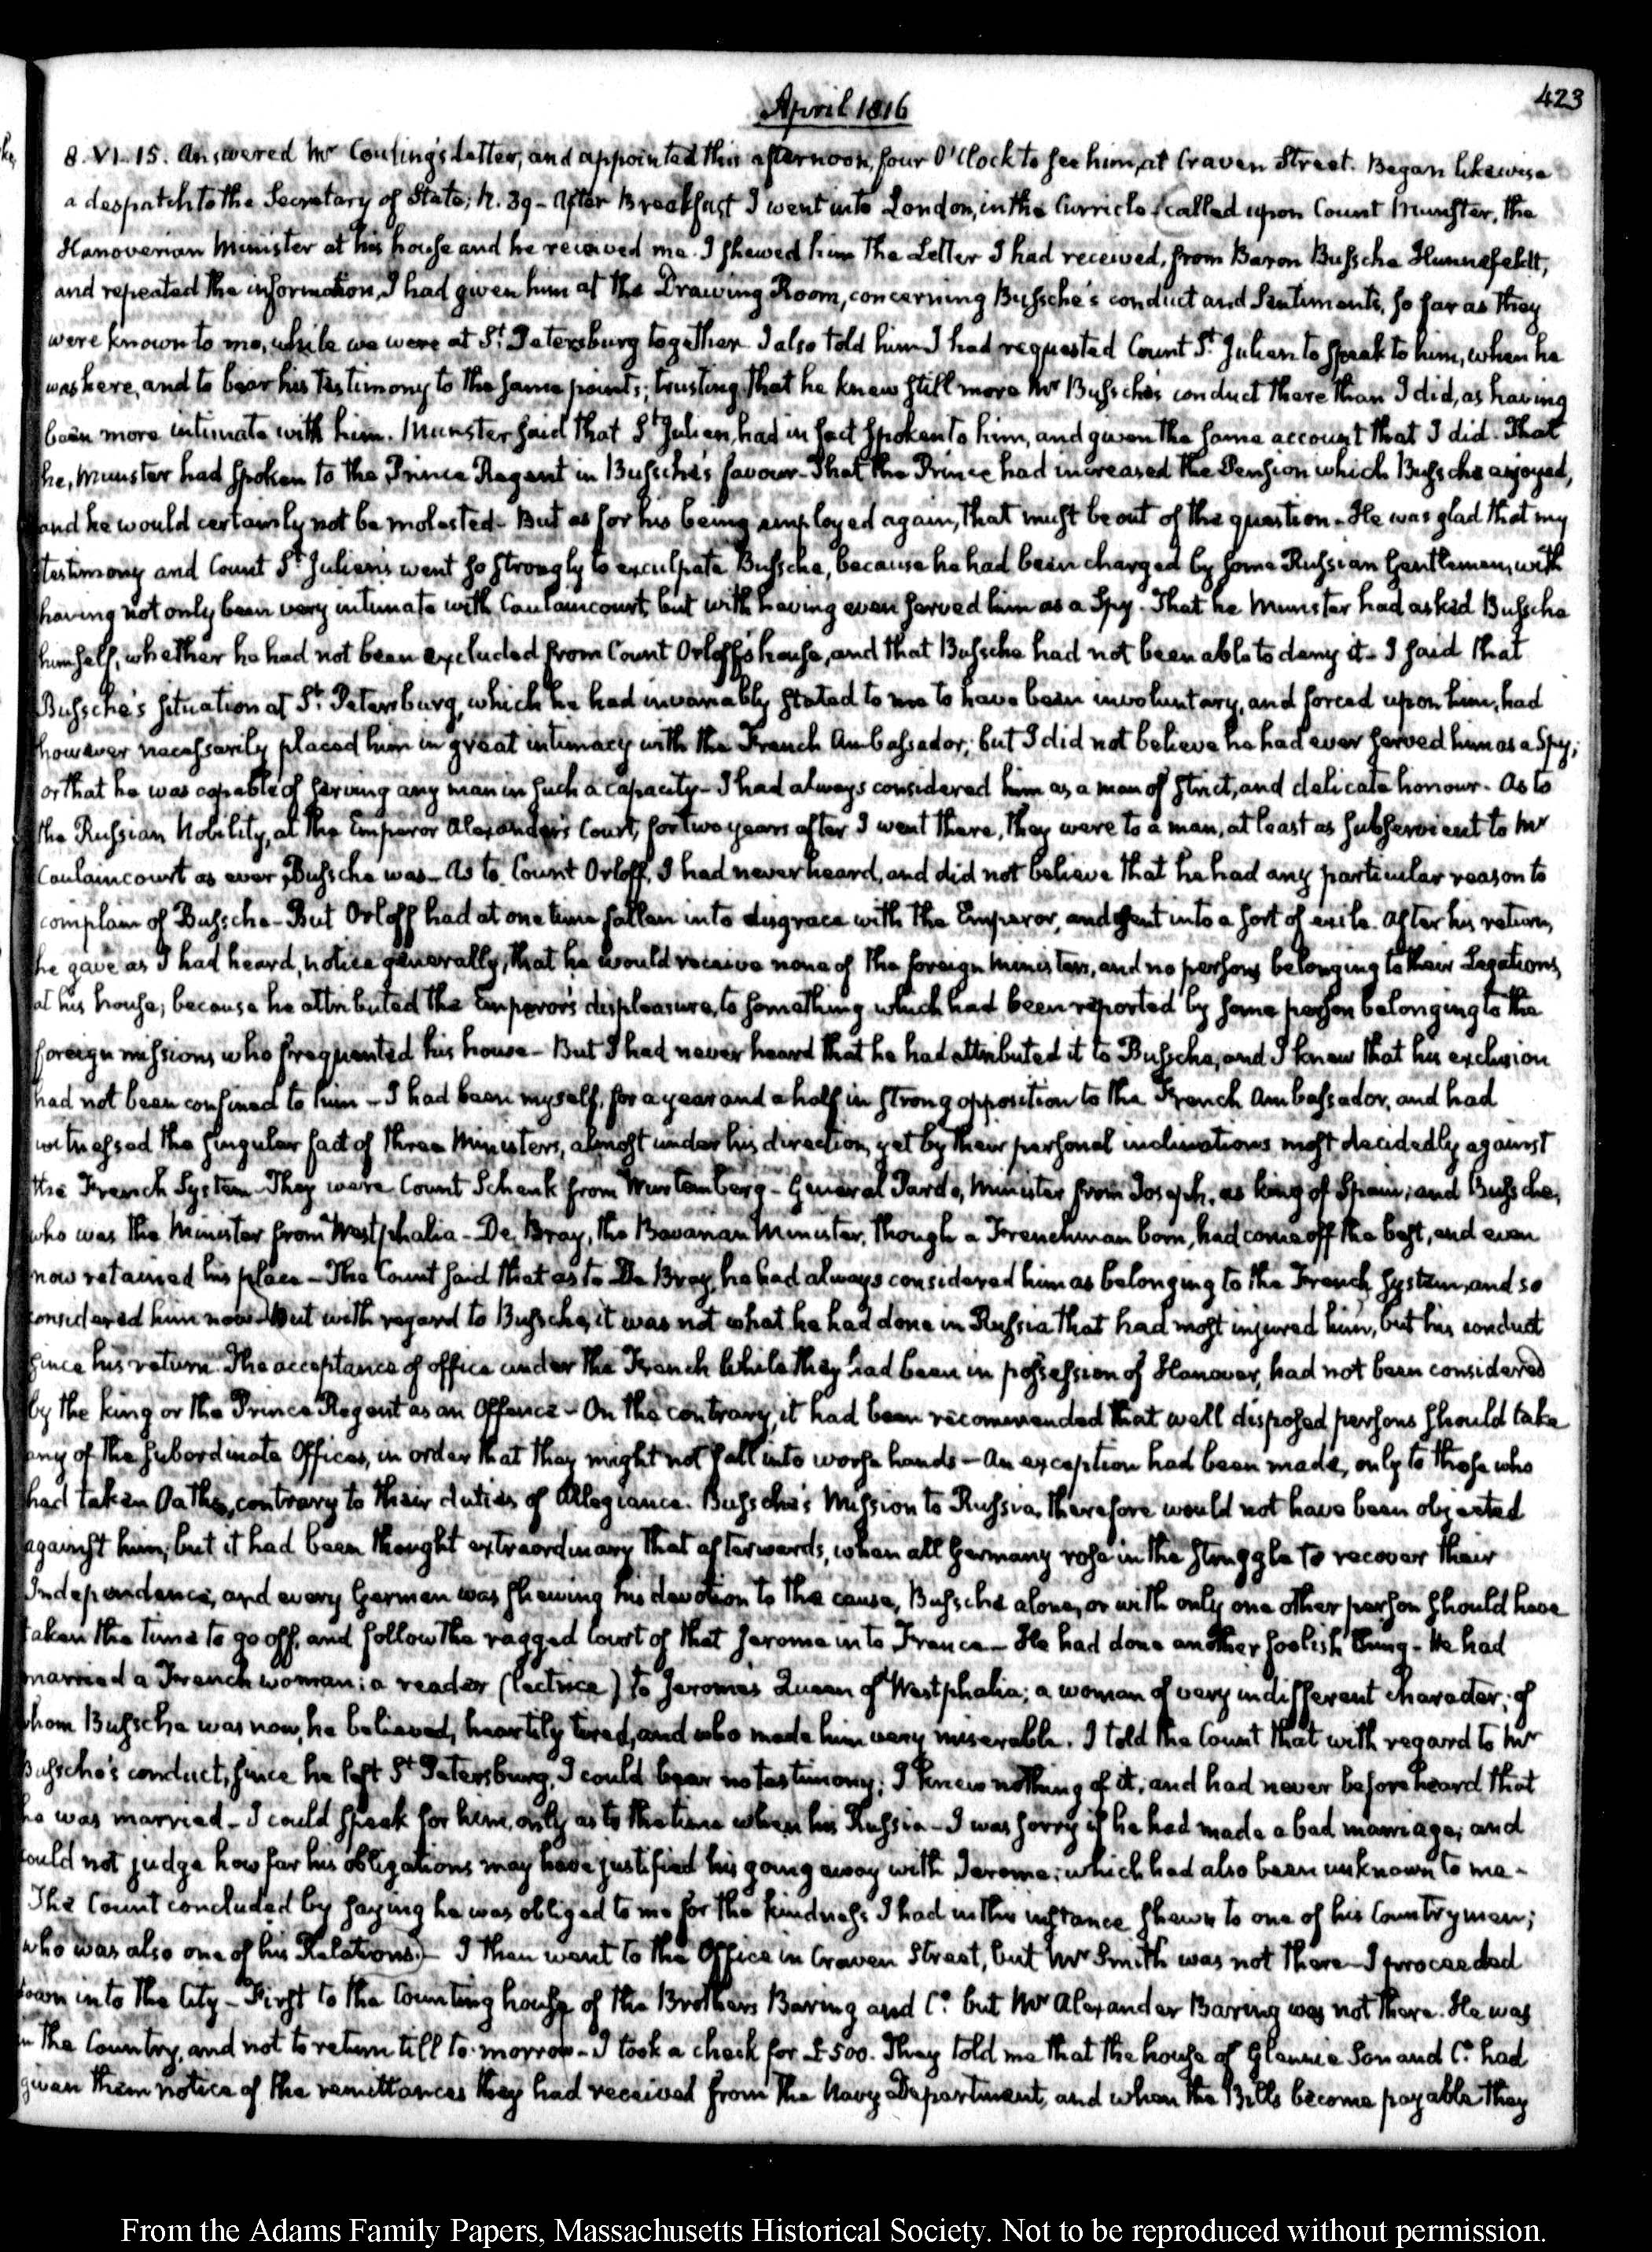 April 1816
423
8. VI. 15. Answered Mr Couling's Letter, and appointed this afternoon, four O'Clock to see him, at Craven Street. Began likewise
a despatch to the Secretary of State; N. 39 - After Breakfast I went into London, in the Curricle (called upon Count Munster, the
Hanoverian Minister at his house and he received me. I shewed him the Letter I had received, from Baron Bussche Hunnefeldt,
and repeated the information, I had given him at the Drawing Room, concerning Bussche's conduct and Sentiments, so far as they
were known to me, while we were at St. Petersburg together. I also told him I had requested Count St. Julien to speak to him, when he
was here, and to bear his testimony to the same points; trusting that he knew still more Mr Bussche's conduct there than I did, as having
been more intimate with him. Munster said that St Julien, had in fact spoken to him, and given the same account that I did. That
he, Munster had spoken to the Prince Regent in Bussche's favour - That the Prince had increased the Pension which Bussche enjoyed,
and he would certainly not be molested - But as for his being employed again, that must be out of the question - He was glad that my
testimony and Count St Julien's went so strongly to exculpate Bussche, because he had been charged by some Russian Gentlemen, with
having not only been very intimate with Caulaincourt, but with having even served him as a Spy. That he Munster had asked Bussche
himself, whether he had not been excluded from Count Orloff's house, and that Bussche had not been able to deny it - I said that
Bussche's situation at St. Petersburg, which he had invariably stated to me to have been involuntary, and forced upon him, had
however necessarily placed him in great intimacy with the French Ambassador; but I did not believe he had ever served him as a Spy;
or that he was capable of serving any man in such a capacity - I had always considered him as a man of strict, and delicate honour. As to
the Russian Nobility, at the Emperor Alexander's Court, for two years after I went there, they were to a man, at least as subservient to Mr
Caulaincourt as ever Bussche was - As to Count Orloff, I had never heard, and did not believe that he had any particular reason to
complain of Bussche - But Orloff had at one time fallen into disgrace with the Emperor, and sent into a sort of exile. After his return,
he gave as I had heard, notice generally, that he would receive none of the foreign Ministers, and no persons belonging to their Legations,
at his house; because he attributed the Emperor's displeasure, to something which had been reported by some person belonging to the
foreign missions who frequented his house - But I had never heard that he had attributed it to Bussche, and I knew that his exclusion
had not been confined to him - I had been myself, for a year and a half in strong opposition to the French Ambassador, and had
witnessed the singular fact of three Ministers, almost under his direction, yet by their personal inclinations most decidedly against
the French System - They were Count Schenk from Wurtemberg - General Pardo, Minister from Joseph, as king of Spain; and Bussche,
who was the Minister from Westphalia - De Bray, the Bavarian Minister, though a Frenchman born, had come off the best, and even
now retained his place - The Count said that as to De Bray, he had always considered him as belonging to the French System, and so
considered him now - But with regard to Bussche, it was not what he had done in Russia that had most injured him, but his conduct
since his return. The acceptance of office under the French while they had been in possession of Hanover, had not been considered
by the king or the Prince Regent as an Offence - On the contrary, it had been recommended that well disposed persons should take
any of the subordinate Offices, in order that they might not fall into worse hands - An exception had been made, only to those who
had taken Oaths, contrary to their duties of Allegiance. Bussche's Mission to Russia, therefore would not have been objected
against him; but it had been thought extraordinary that afterwards, when all Germany rose in the struggle to recover their
Independence, and every German was shewing his devotion to the cause, Bussche alone, or with only one other person should have
taken the time to go off, and follow the ragged Court of that Jerome into France - He had done another foolish thing - He had
married a French woman; a reader (lectrice) to Jerome's Queen of Westphalia; a woman of very indifferent character; of
whom Bussche was now, he believed, heartily tired, and who made him very miserable. I told the Count that with regard to Mr
Bussche's conduct, since he left St Petersburg, I could bear no testimony; I knew nothing of it; and had never before heard that
he was married - I could speak for him, only as to the time when his Russia - I was sorry if he had made a bad marriage; and
could not judge how far his obligations may have justified his going away with Jerome; which had also been unknown to me -
The Count concluded by saying he was obliged to me for the kindness I had in this instance shewn to one of his Countrymen;
who was also one of his Relations) - I then went to the Office in Craven Street, but Mr Smith was not there - I proceeded
down into the City - First to the Counting house of the Brothers Baring and Co. but Mr Alexander Baring was not there. He was
in the Country, and not to return till to-morrow - I took a check for £500. They told me that the house of Glennie Son and Co. had
given them notice of the remittances they had received from the Navy Department, and when the Bills become payable they
From the Adams Family Papers, Massachusetts Historical Society. Not to be reproduced without permission.